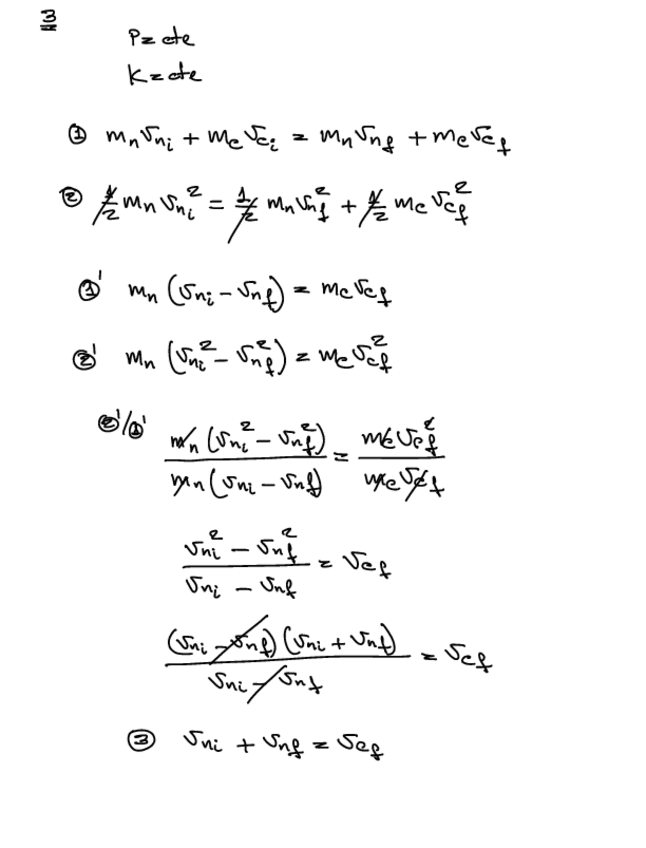 3
P = cte
K = cte
① mₙvₙᵢ + m_c v_cᵢ = mₙvₙ_f + m_c v_c_f
② 1/2 mₙ vₙᵢ² = 1/2 mₙ vₙ_f² + 1/2 m_c v_c_f²
①' mₙ (vₙᵢ - vₙ_f) = m_c v_c_f
②' mₙ (vₙᵢ² - vₙ_f²) = m_c v_c_f²
②'/①' mₙ (vₙᵢ² - vₙ_f²) / mₙ (vₙᵢ - vₙ_f) = m_c v_c_f² / m_c v_c_f
(vₙᵢ² - vₙ_f²) / (vₙᵢ - vₙ_f) = v_c_f
(vₙᵢ - vₙ_f) (vₙᵢ + vₙ_f) / (vₙᵢ - vₙ_f) = v_c_f
③ vₙᵢ + vₙ_f = v_c_f